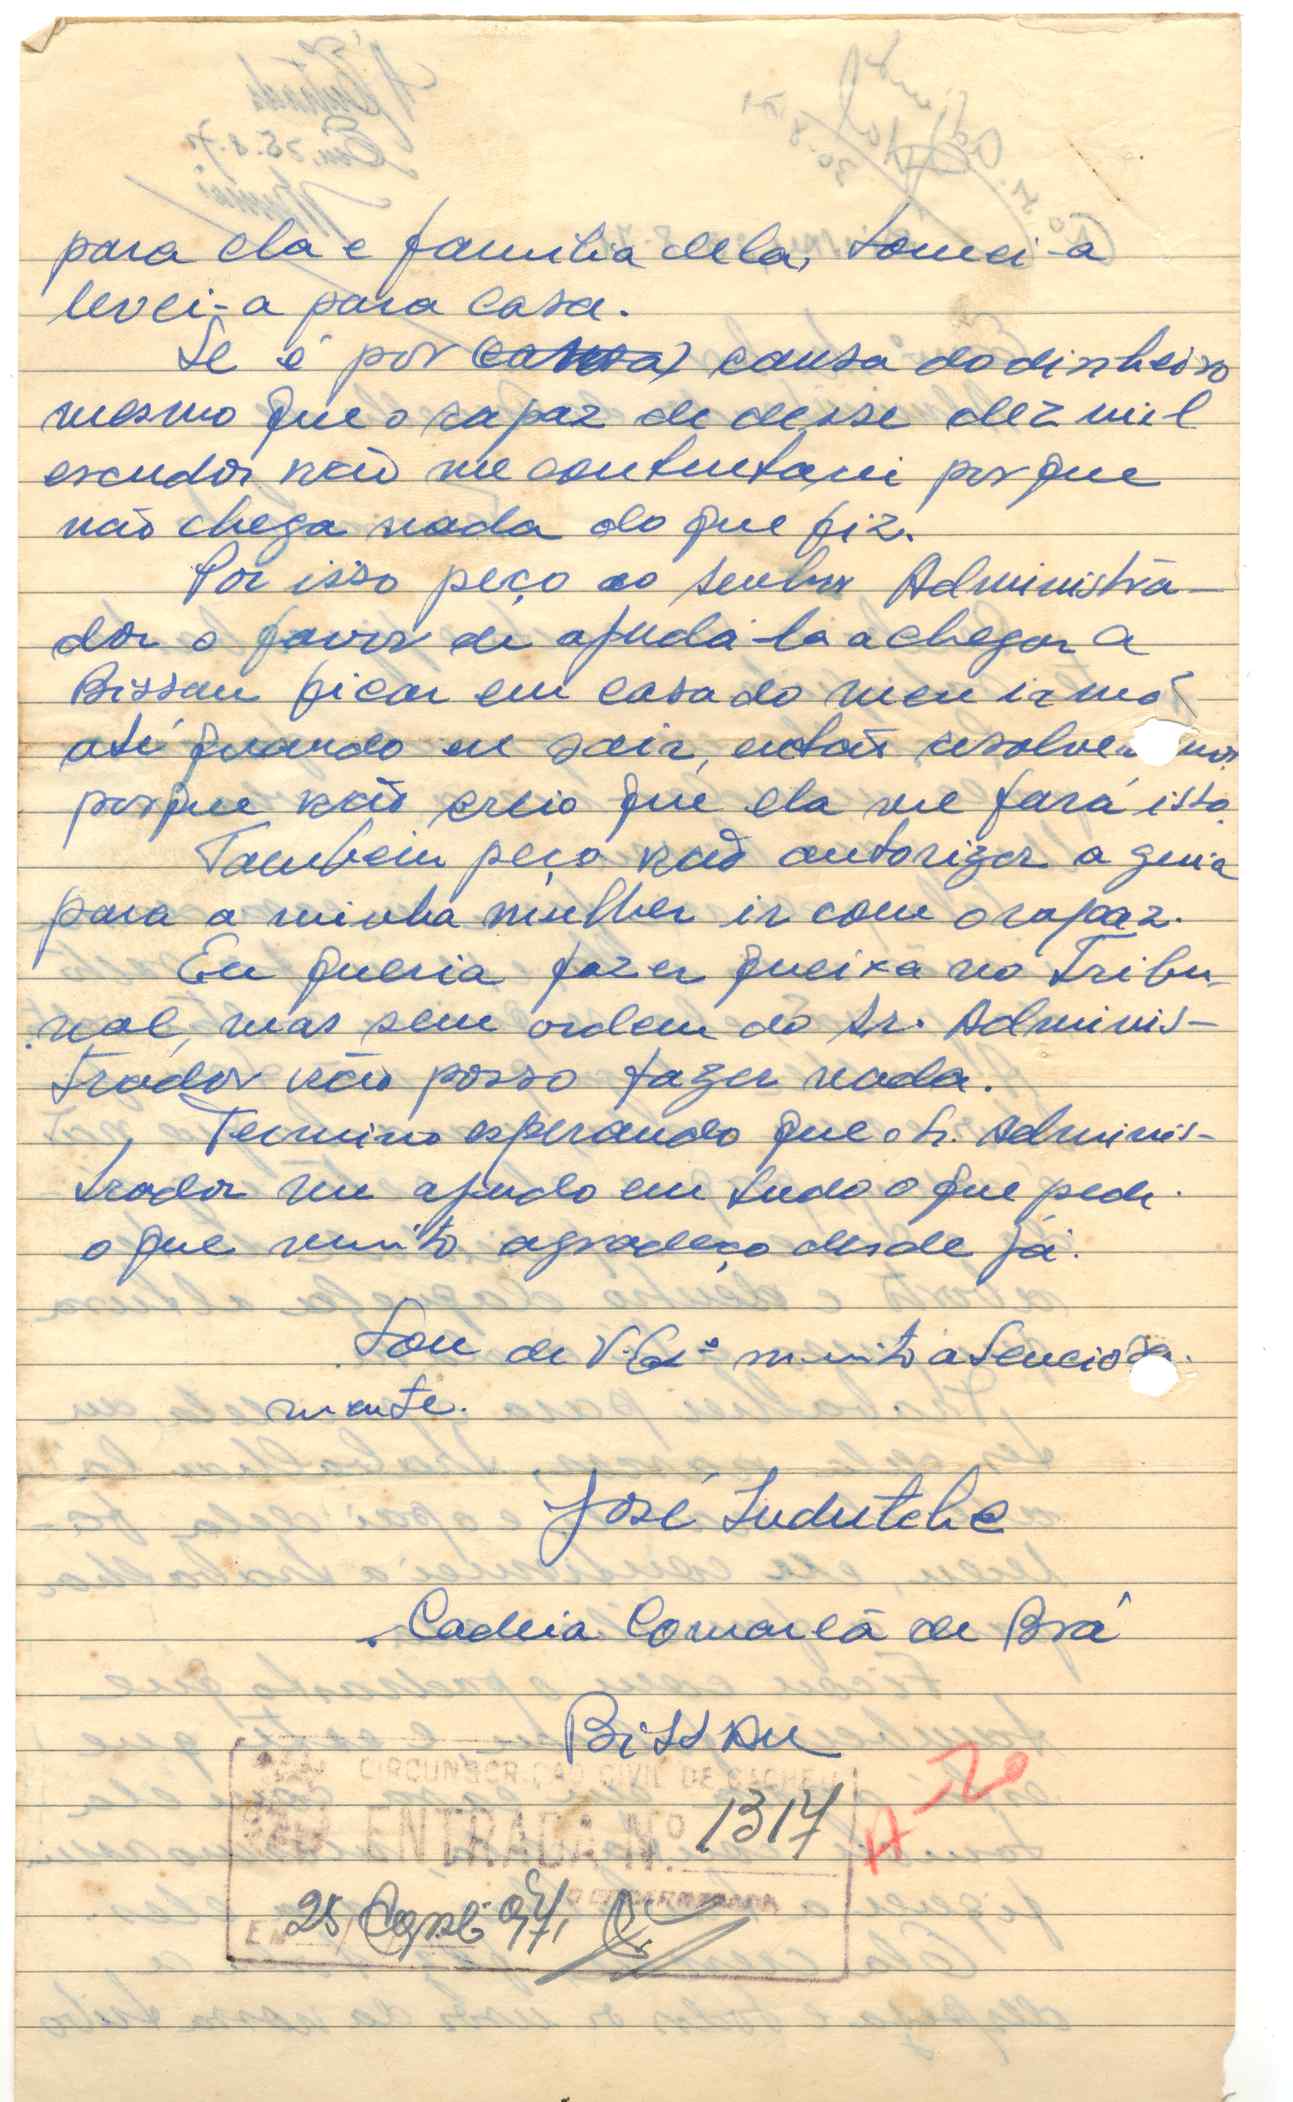 para ela e familia dela, tomei-a
levei-a para casa.
Se é por causa do dinheiro
mesmo que o rapaz de desse dez mil
escudos não me contentari porque
não chega nada do que fiz.
Por isso peço ao senhor Administra-
dor o favor de ajudá-la a chegar a
Bissau ficar em casa do meu irmão
até quando eu sair, então
porque não creio que ela me fará isto.
Tambein peço não autorizar a guia
para a minha mulher ir com o rapaz.
Eu queria fazer queixa no Tribu-
nal, mas sem ordem do Sr. Adminis-
trador não posso fazer nada.
Termino esperando que o Sr. Adminis-
trador me ajudo em tudo o que pedi.
o que muito agradeço desde já.
Sou de V. Exª muito atenciosa-
mente.
José
Cadeia Comarcã de Brá
Bissau
CIRCUNSCRIÇÃO CIVIL DE CACHEU
ENTRADA Nº 1317
EM 25 Agosto 971
A-20